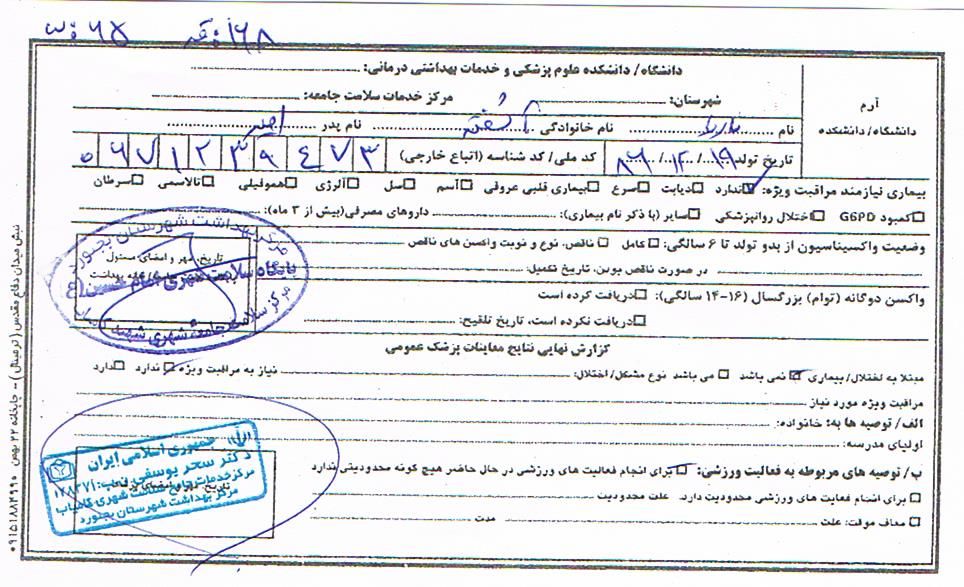 قد: ۱۶۸ وزن: ۶۵
آرم
دانشگاه/ دانشکده
دانشگاه/ دانشکده علوم پزشکی و خدمات بهداشتی درمانی:
شهرستان: مرکز خدمات سلامت جامعه:
نام نام خانوادگی نام پدر
تاریخ تولد ۱۹/ ۱۲/ ۸۶ کد ملی/ کد شناسه (اتباع خارجی) ۰۶۷۱۲۳۹۴۷۳
بیماری نیازمند مراقبت ویژه: ندارد دیابت صرع بیماری قلبی عروقی آسم سل آلرژی هموفیلی تالاسمی سرطان
کمبود G6PD اختلال روانپزشکی سایر (با ذکر نام بیماری): داروهای مصرفی(بیش از ۳ ماه):
وضعیت واکسیناسیون از بدو تولد تا ۶ سالگی: کامل ناقص، نوع و نوبت واکسن های ناقص
در صورت ناقص بودن، تاریخ تکمیل:
واکسن دوگانه (توام) بزرگسال (۱۶-۱۴ سالگی): دریافت کرده است
دریافت نکرده است، تاریخ تلقیح:
تاریخ، مهر و امضای مسئول
مرکز بهداشت شهرستان بجنورد
پایگاه سلامت شهری امام حسین (ع)
مرکز سلامت جامعه شهری شهید
گزارش نهایی نتایج معاینات پزشک عمومی
مبتلا به اختلال/ بیماری نمی باشد می باشد نوع مشکل/ اختلال: نیاز به مراقبت ویژه ندارد دارد
مراقبت ویژه مورد نیاز
الف/ توصیه ها به: خانواده:
اولیای مدرسه:
ب/ توصیه های مربوطه به فعالیت ورزشی: برای انجام فعالیت های ورزشی در حال حاضر هیچ گونه محدودیتی ندارد
برای انسام فعالیت های ورزشی محدودیت دارد. علت محدودیت
معاف موقت: علت مدت
جمهوری اسلامی ایران
دکتر سحر یوسفی
مرکز خدمات جامع سلامت شهری کامیاب
مرکز بهداشت شهرستان بجنورد
نبش میدان دفاع مقدس (ترمینال) - چاپخانه ۲۲ بهمن ۰۹۱۵۱۸۸۲۹۹۰